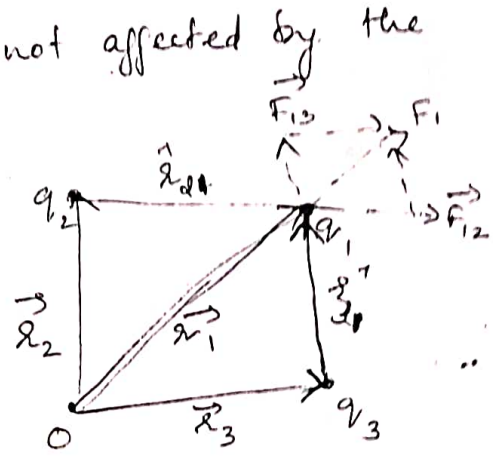 not affected by the
F₁₃ F₁
r̂₂₁
q₂ q₁ F₁₂
r₂ r₁
O r₃ q₃